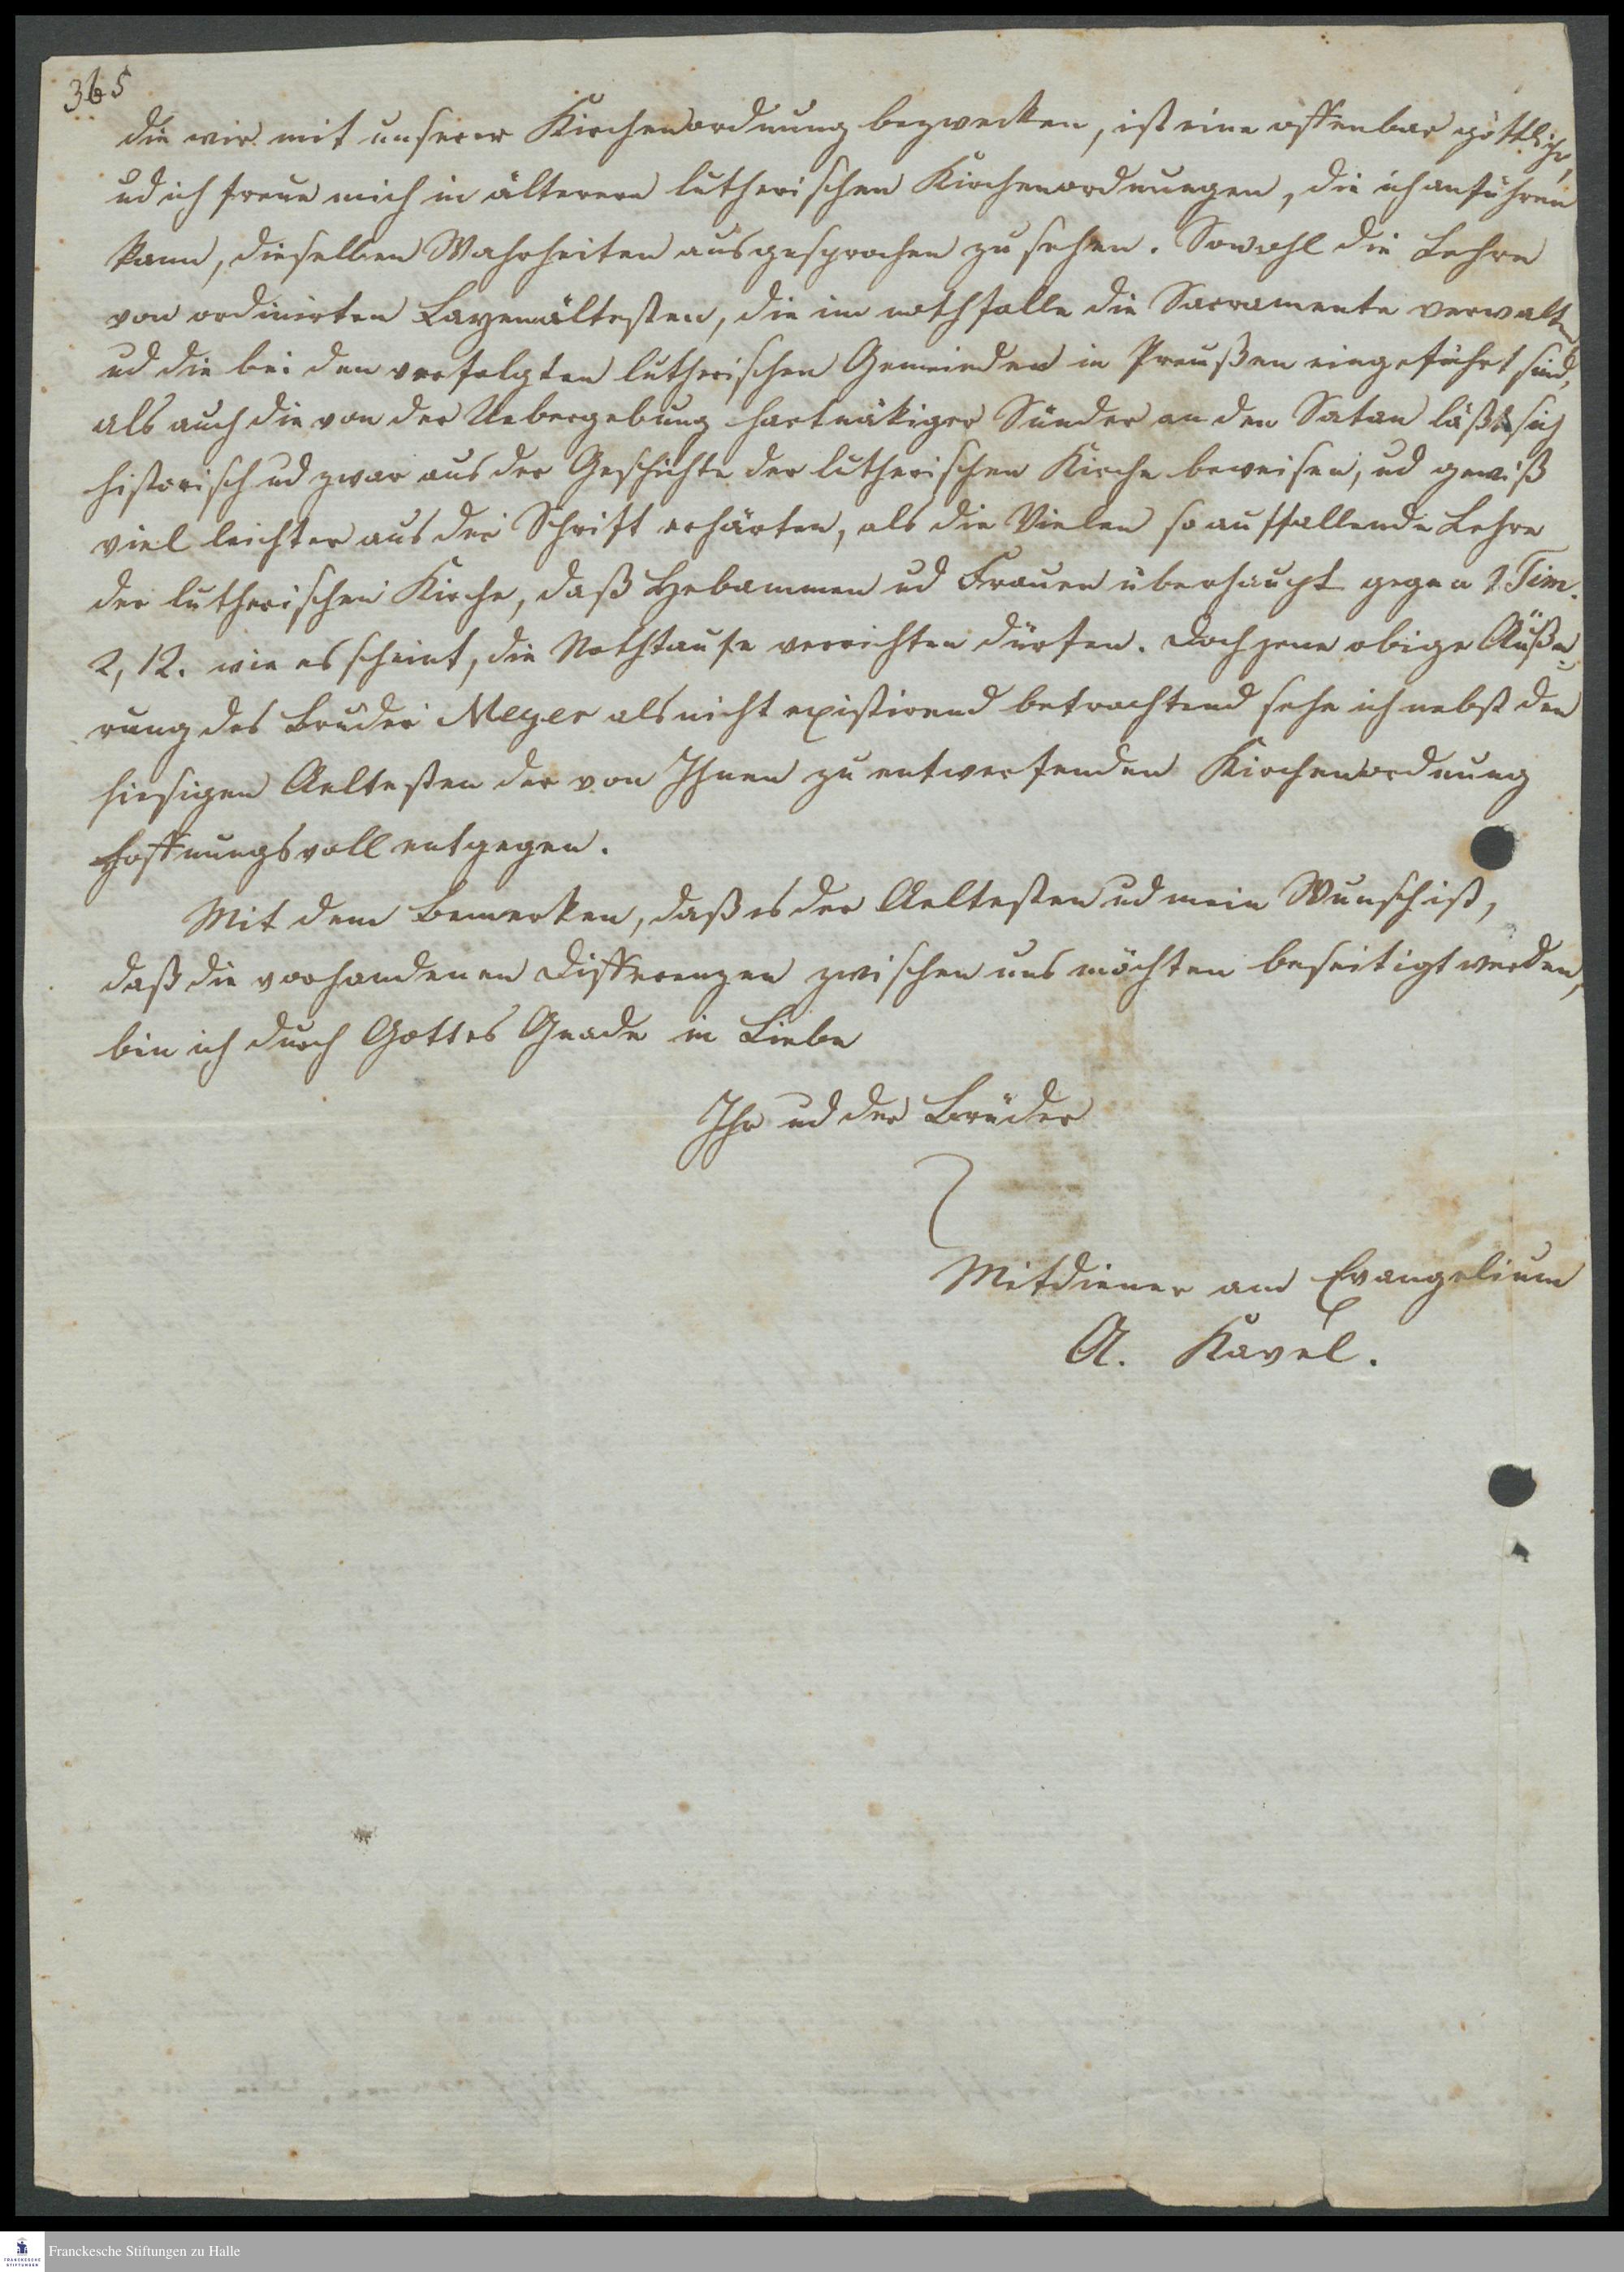 365
die wir mit unserer Kirchenordnung bezwecken, ist eine offenbar göttliche,
ud ich freue mich in älteren lutherischen Kirchenordnungen, die ich anführen
kann, dieselben Wahrheiten ausgesprochen zu sehen. Sowohl die Lehre
von ordinirten Layenältesten, die im nothfalle die Sacramente verwalten
ud die bei den verfolgten lutherischen Gemeinden in Preußen eingeführt sind,
als auch die von der Uebergebung hartnäkiger Sünder an den Satan läßt sich
historisch ud zwar aus der Geschichte der lutherischen Kirche beweisen, ud gewiß
viel leichter aus der Schrift erhärten, als die Vielen so auffallende Lehre
der lutherischen Kirche, daß Hebammen ud Frauen überhaupt gegen 1 Tim.
2, 12. wie es scheint, die Nothtaufe verrichten dürfen. Doch jene obige Äuße-
rung des Bruder Meyer als nicht existirend betrachtend sehe ich nebst den
hiesigen Aeltesten der von Ihnen zu entwerfenden Kirchenordnung
hoffnungsvoll entgegen.
Mit dem Bemerken, daß es der Aeltesten ud mein Wunsch ist,
daß die vorhandenen Differenzen zwischen uns möchten beseitigt werden,
bin ich durch Gottes Gnade in Liebe
Ihr ud der Brüder
Mitdiener am Evangelium
A. Kavel.
Franckesche Stiftungen zu Halle
FRANCKESCHE
STIFTUNGEN